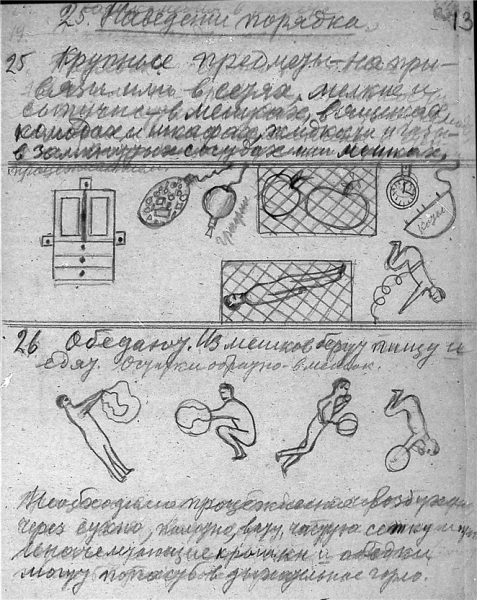 25. Наведение порядка.
13
25 Крупные предметы на при-
вязи или в сетях, мелкие и
сыпучие в мешках, в ящиках
комодах и шкафах, жидкости и газы-
в замкнутых сосудах или мешках.
графин
26 Обедают. Из мешков берут пищу и
едят. Огрызки обратно в мешок.
Необходимо процеживание воздуха
через сукно, воду, частую сетку и
крошки и объедки
могут попасть в дыхательное горло.